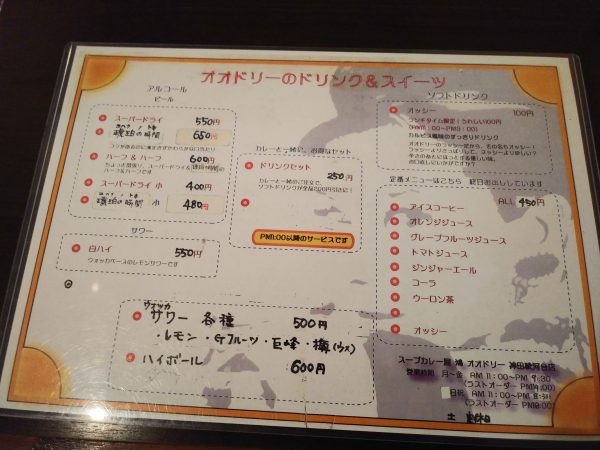 オオドリーのドリンク&スイーツ
アルコール
ビール
スーパードライ 550円
琥珀の時間 650円
ハーフ & ハーフ 600円
スーパードライ 小 400円
琥珀の時間 小 480円
サワー
白ハイ 550円
ウォッカベースのレモンサワーです
カレーと一緒に、お得なセット
ドリンクセット 250円
カレーと一緒のご注文で、
ソフトドリンクが全品200円引きに!
PM1:00以降のサービスです
ウォッカ
サワー 各種 500円
・レモン・Gフルーツ・巨峰・梅(ウメ)
ハイボール 600円
ソフトドリンク
オッシー 100円
ランチタイム限定!うれしい100円
(AM11:00~PM3:00)
カルピス風味のすっきりドリンク
定番メニューはこちら 終日お出ししています
ALL 450円
アイスコーヒー
オレンジジュース
グレープフルーツジュース
トマトジュース
ジンジャーエール
コーラ
ウーロン茶
オッシー
スープカレー屋 鴻 オオドリー 神田駿河台店
営業時間 月~金 AM 11:00~PM 9:30
(ラストオーダー PM9:00)
日祝 AM 11:00~PM
(ラストオーダー PM8:00)
土 定休日